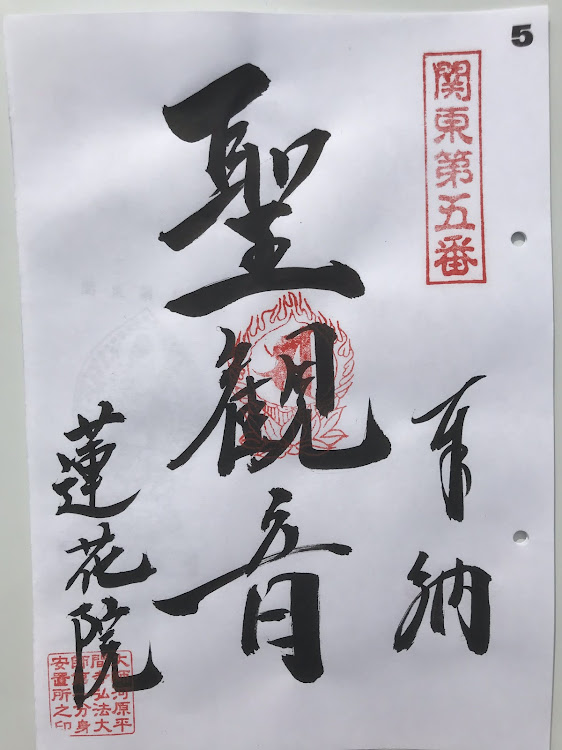 5
関東第五番
奉納
聖観音
蓮花院
河原平
弘法大
分身
安置所之印